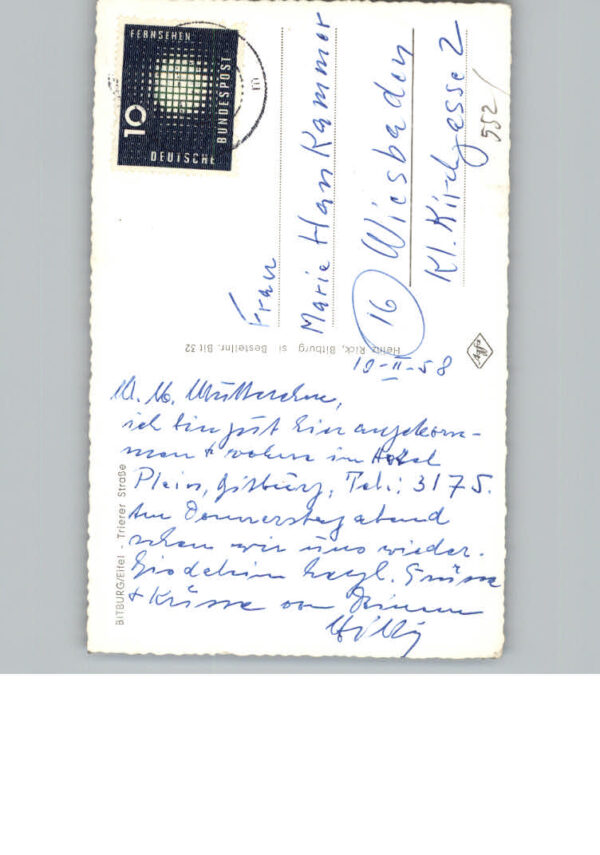 FERNSEHEN
10
DEUTSCHE
BUNDESPOST
Frau
Marie Hankammer
16 Wiesbaden
Kl. Kirchgasse 2
552/
Heinz Rick, Bitburg Bestellnr. Bit 32
Agfa
10-II-58
Mütterchen,
ich bin gut hier angekom-
men + wohne im Hotel
Plein, Bitburg, Tel.: 3175.
Am Donnerstagabend
sehen wir uns wieder.
herzl. Grüsse
+ Küsse von Deinem
Willy
BITBURG/Eifel - Trierer Straße